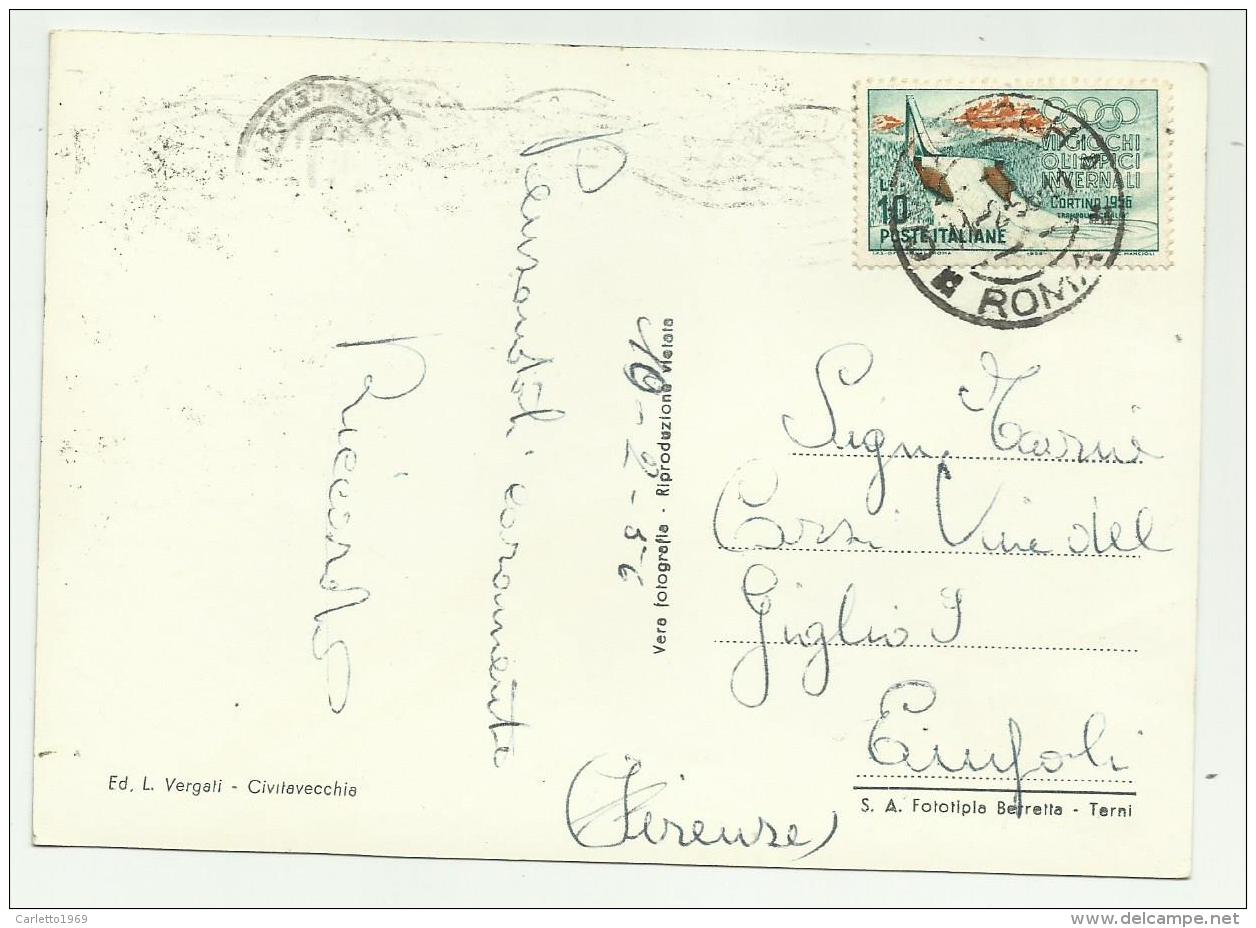 VII GIOCHI
OLIMPICI
INVERNALI
CORTINA 1956
L. 10
POSTE ITALIANE
ROMA
Pensandoti caramente
Riccardo
10-2-56
Vera fotografia - Riproduzione vietata
Sign. Marni
Corsi Via del
Giglio 9
Empoli
(Firenze)
Ed. L. Vergati - Civitavecchia
S. A. Fototipia Berretta - Terni
Carletto1969
www.delcampe.net